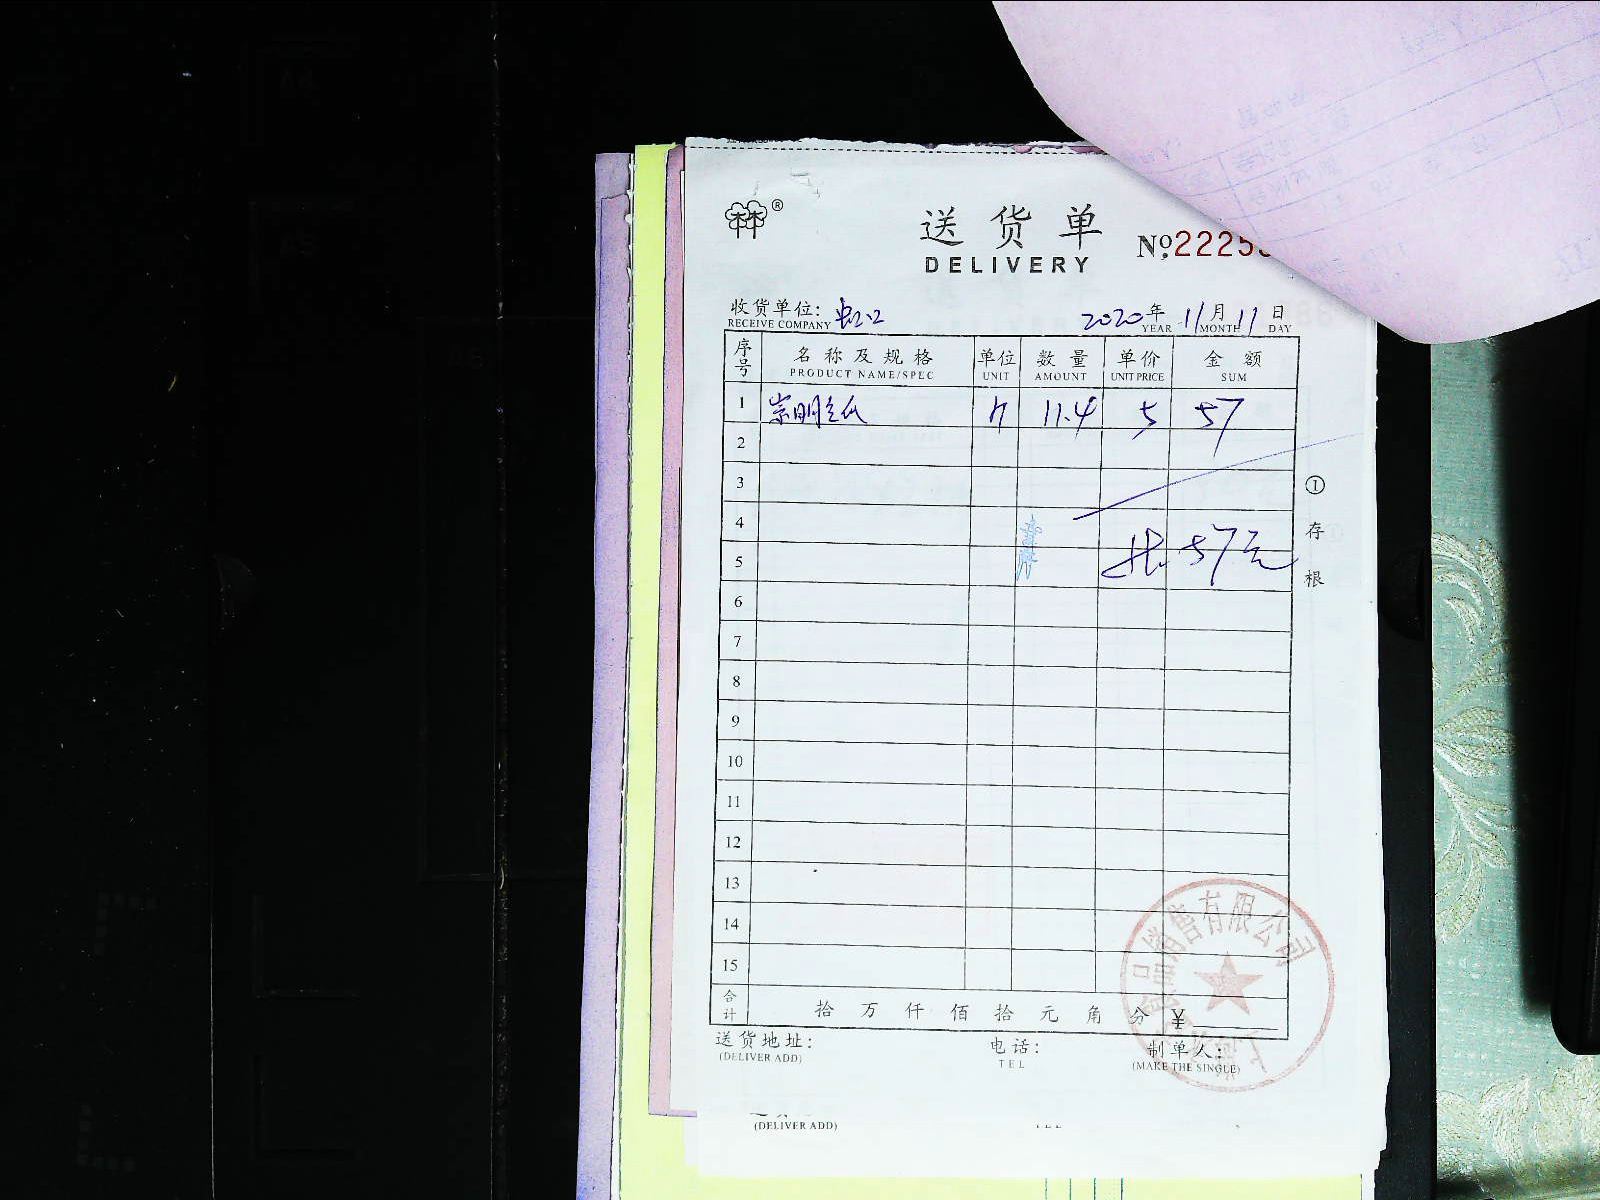 ®
送货单
DELIVERY
№ 2225
收货单位: 虹口 2020年 11月 11日
RECEIVE COMPANY YEAR MONTH DAY
序号 名称及规格 单位 数量 单价 金额
PRODUCT NAME/SPEC UNIT AMOUNT UNIT PRICE SUM
1 崇明 11.4 5 57
2
3
4
5 共 57元
6
7
8
9
10
11
12
13
14
15
① 存根
合计 拾万仟佰拾元角分 ¥
送货地址: 电话: 制单人:
(DELIVER ADD) TEL (MAKE THE SINGLE)
品销售有限公司
(DELIVER ADD)